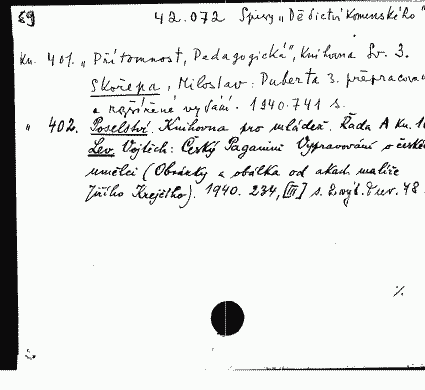 89 42.072 Spisy „Dědictví Komenského"
Kn. 401. „Přítomnost, Pedagogická", Knihovna Sv. 3.
Skořepa, Miloslav: Puberta 3. přepracova
a rozšířené vydání. 1940. 741 s.
" 402. Poselství. Knihovna pro mládež. Řada A kn. 10
Lev Vojtěch: Český Paganini Vypravování o české
umělci (Obrázky a obálka od akad. malíře
Jiřího Krejčího). 1940. 234, [III] s.
%